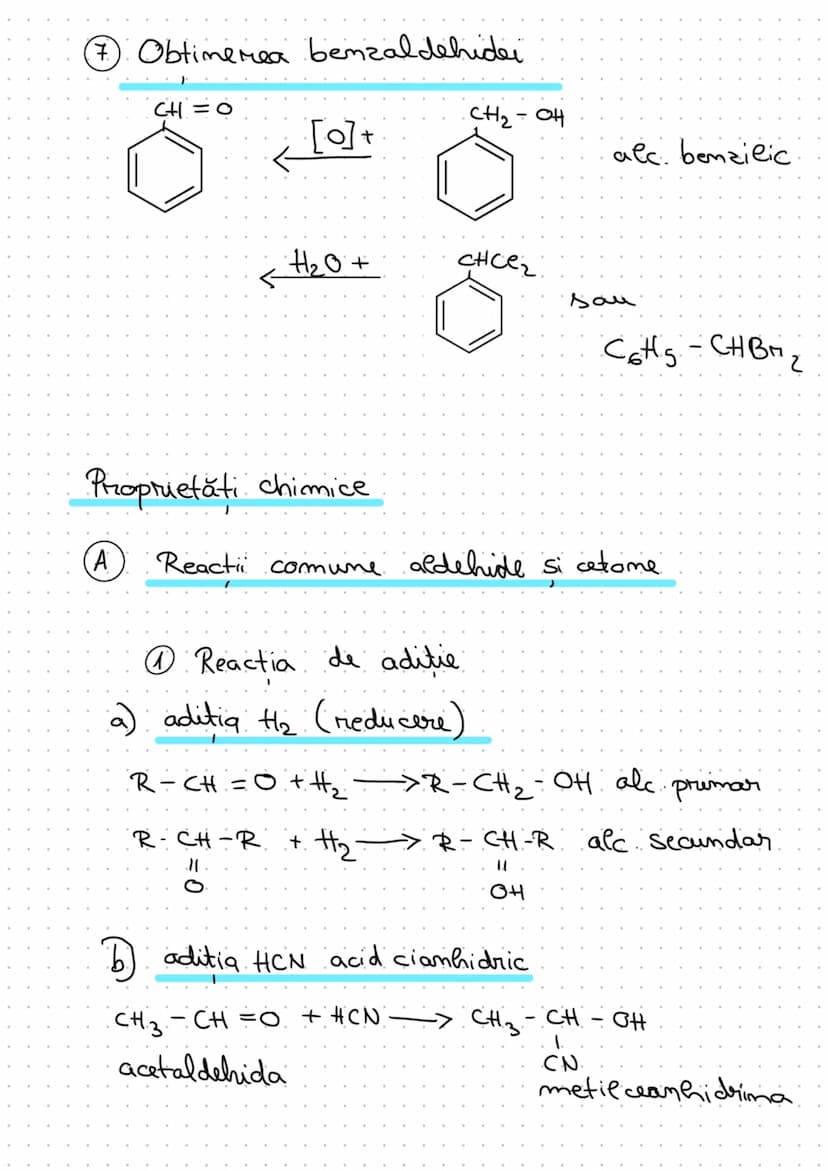 ⑦ Obținerea benzaldehidei
CH = O
[O]+
CH₂ - OH
alc. benzilic
H₂O +
CHCl₂
sau
C₆H₅ - CHBr₂
Proprietăți chimice
Ⓐ Reacții comune aldehide și cetone
① Reacția de adiție
a) adiția H₂ (reducere)
R - CH = O + H₂ ⟶ R - CH₂ - OH alc. primar
R - CH - R + H₂ ⟶ R - CH - R alc. secundar
|| ||
O OH
b) adiția HCN acid cianhidric
CH₃ - CH = O + HCN ⟶ CH₃ - CH - OH
|
acetaldehida CN
metilcianhidrina